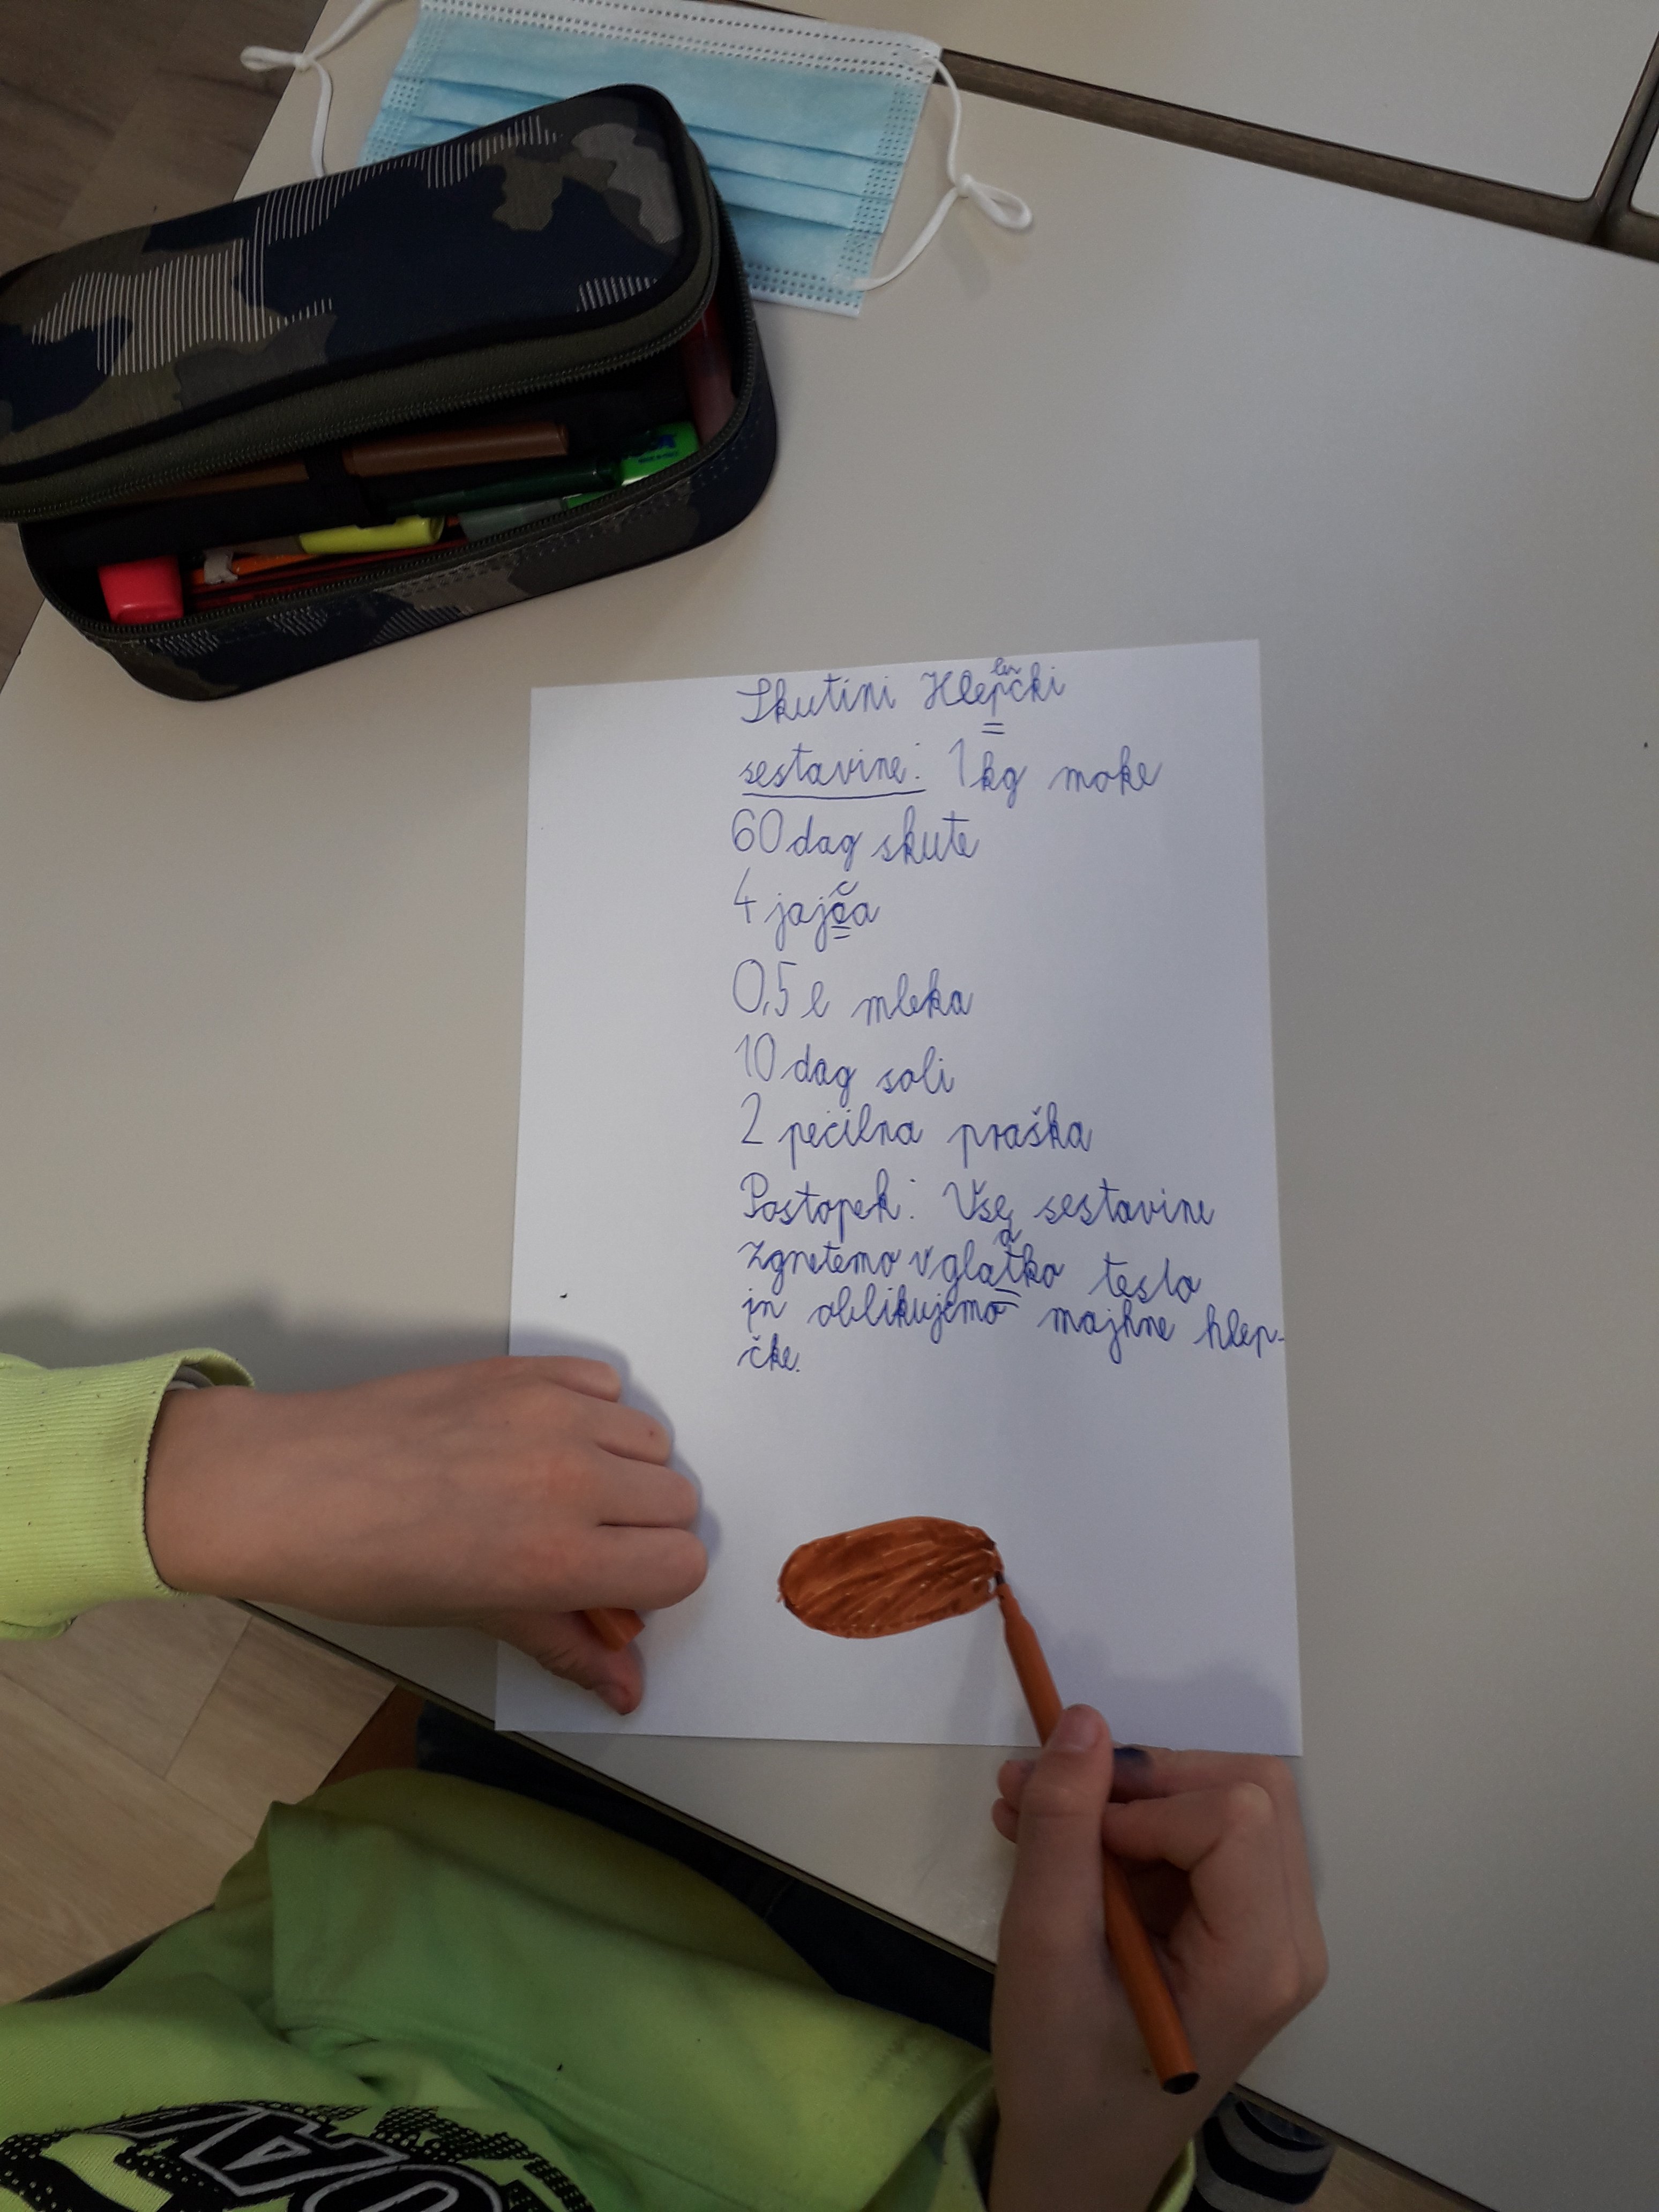 Skutini Hlepčki
sestavine: 1kg moke
60 dag skute
4 jajča
0,5 l mleka
10 dag soli
2 pecilna praška
Postopek: Vse sestavine
zgnetemo v glatko testo
in oblikujemo majhne hlep-
čke.